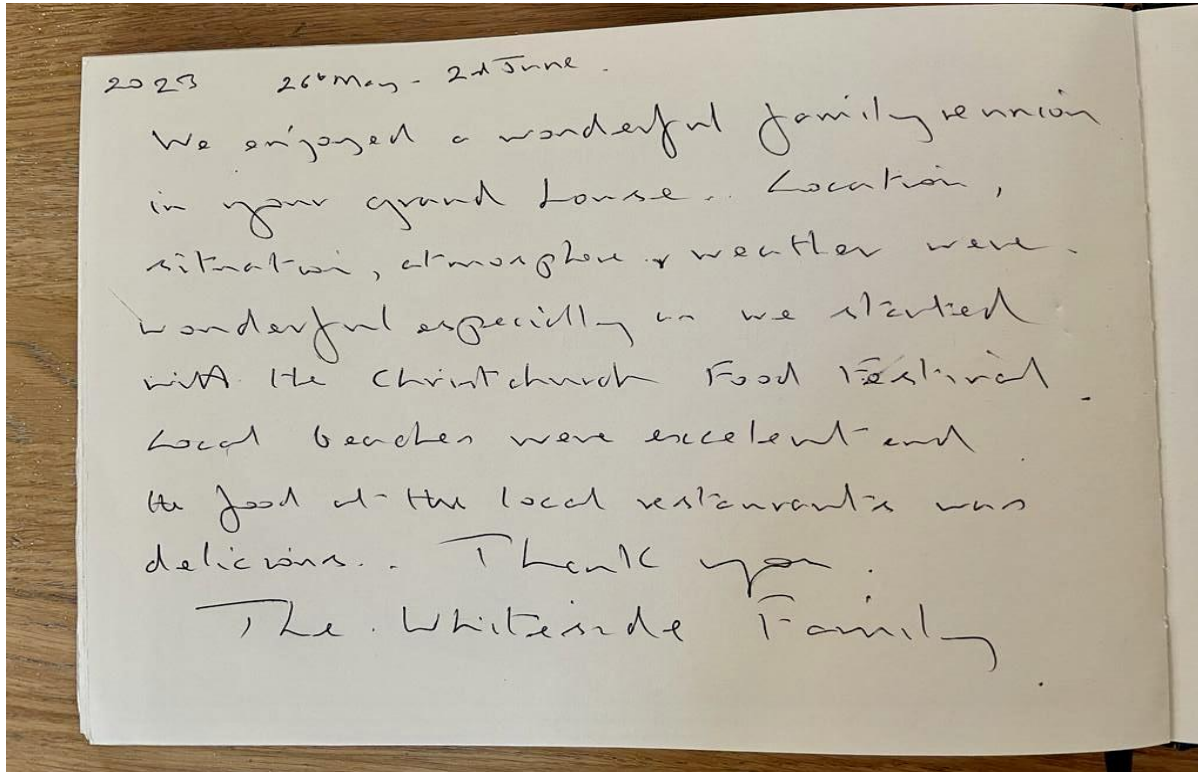 2023 26th May - 2nd June.
We enjoyed a wonderful family reunion
in your grand house.. Location,
situation, atmosphere & weather were.
wonderful especially as we started
with the Christchurch Food Festival.
Local beaches were excelent and
the food at the local restaurants was
delicious.. Thank you.
The Whiteside Family